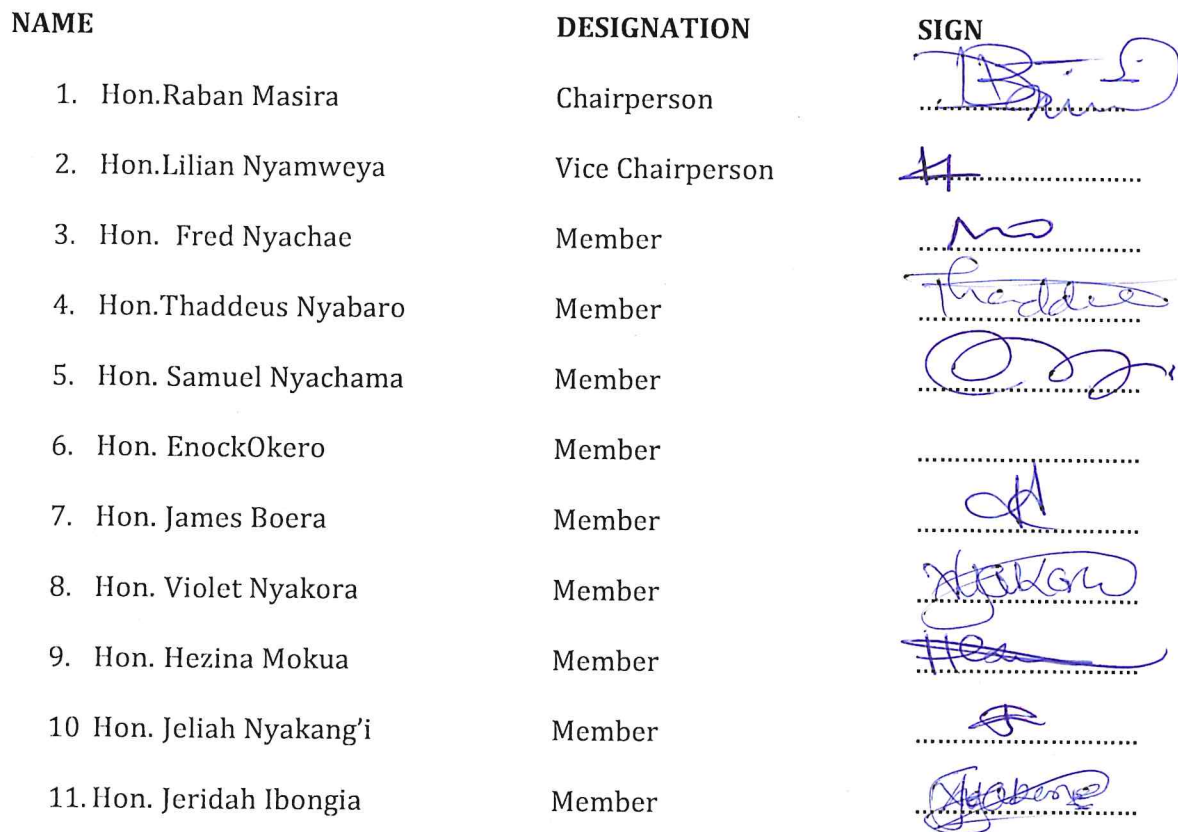 NAME DESIGNATION SIGN
1. Hon.Raban Masira Chairperson
2. Hon.Lilian Nyamweya Vice Chairperson
3. Hon. Fred Nyachae Member
4. Hon.Thaddeus Nyabaro Member Thaddeus
5. Hon. Samuel Nyachama Member
6. Hon. EnockOkero Member
7. Hon. James Boera Member
8. Hon. Violet Nyakora Member
9. Hon. Hezina Mokua Member
10 Hon. Jeliah Nyakang'i Member
11. Hon. Jeridah Ibongia Member